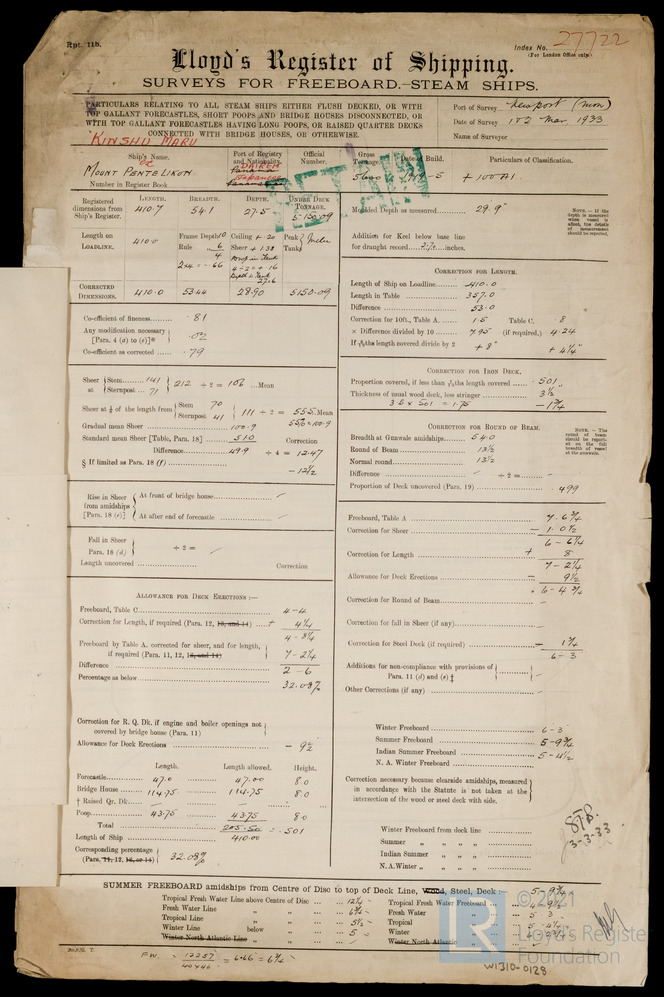 Rpt. 11b.
Index No. 27722
(For London Office only)
Lloyd's Register of Shipping.
SURVEYS FOR FREEBOARD.—STEAM SHIPS.
PARTICULARS RELATING TO ALL STEAM SHIPS EITHER FLUSH DECKED, OR WITH
TOP GALLANT FORECASTLES, SHORT POOPS AND BRIDGE HOUSES DISCONNECTED, OR
WITH TOP GALLANT FORECASTLES HAVING LONG POOPS, OR RAISED QUARTER DECKS
CONNECTED WITH BRIDGE HOUSES, OR OTHERWISE.
Port of Survey Newport (Mon)
Date of Survey 1st & 2 Mar 1933
Name of Surveyor
KINSHU MARU
Ship's Name.
Port of Registry and Nationality.
Official Number.
Gross Tonnage.
Date of Build.
Particulars of Classification.
MOUNT PENTELIKON
DAIREN
Japanese
RETAIN
+ 100 A1
Number in Register Book
Registered dimensions from Ship's Register.
LENGTH. 410.7
BREADTH. 54.1
DEPTH. 27.5
UNDER DECK TONNAGE. 5150.09
Moulded Depth as measured 29.9"
NOTE.—If the depth is measured when vessel is afloat, the details of measurement should be reported.
Length on LOADLINE. 410.0
Frame Depth 10
Rule 6
4
2x4 = .66
Ceiling + .20
Sheer + 1.38
Peak Tanks
Addition for Keel below base line
for draught record inches.
CORRECTED DIMENSIONS. 410.0 53.44 28.90 5150.09
Co-efficient of fineness .81
Any modification necessary [Para. 4 (a) to (e)]* .02
Co-efficient as corrected .79
Sheer at Stem 141 Sternpost 71 212 ÷ 2 = 106 Mean
Sheer at ⅛ of the length from Stem 70 Sternpost 41 111 ÷ 2 = 55.5 Mean
Gradual mean Sheer 100.9
Standard mean Sheer [Table, Para. 18] 51.0 Correction
Difference 49.9 ÷ 4 = 12.47
§ If limited as Para. 18 (f) - 12½
Rise in Sheer from amidships [Para. 18 (e)]
At front of bridge house
At after end of forecastle
Fall in Sheer Para. 18 (d) ÷ 2 =
Length uncovered Correction
ALLOWANCE FOR DECK ERECTIONS:—
Freeboard, Table C 4-4
Correction for Length, if required (Para. 12, 13, and 14) + 4¼
4-8¼
Freeboard by Table A. corrected for sheer, and for length, if required (Para. 11, 12, 13, and 14) 7-2¼
Difference 2-6
Percentage as below 32.08%
Correction for R. Q. Dk. if engine and boiler openings not covered by bridge house (Para. 11)
Allowance for Deck Erections - 9½
Length. Length allowed. Height.
Forecastle 47.0 47.00 8.0
Bridge House 114.75 114.75 8.0
† Raised Qr. Dk.
Poop 43.75 43.75 8.0
Total 205.50 = .501
Length of Ship 410.00
Corresponding percentage (Para. 11, 12, 13, or 14) 32.08%
CORRECTION FOR LENGTH.
Length of Ship on Loadline 410.0
Length in Table 357.0
Difference 53.0
Correction for 10ft., Table A. 1.5 Table C. .8
× Difference divided by 10 7.95 (if required.) 4.24
If 6/10ths length covered divide by 2 + 8" + 4¼"
CORRECTION FOR IRON DECK.
Proportion covered, if less than 7/10ths length covered .501
Thickness of usual wood deck, less stringer 3½"
3.5 x .501 = 1.75 - 1¾
CORRECTION FOR ROUND OF BEAM.
Breadth at Gunwale amidships 54.0
Round of Beam 13½
Normal round 13½
Difference ÷ 2 =
Proportion of Deck uncovered (Para. 19) .499
NOTE.—The round of beam should be reported on the full breadth of vessel at the gunwale.
Freeboard, Table A 7.6¾
Correction for Sheer - 1.0½
6-6¼
Correction for Length + 8
7-2¼
Allowance for Deck Erections - 9½
6-4¾
Correction for Round of Beam
Correction for fall in Sheer (if any)
Correction for Steel Deck (if required) - 1¾
6-3
Additions for non-compliance with provisions of Para. 11 (d) and (e) ‡
Other Corrections (if any)
Winter Freeboard 6-3
Summer Freeboard 5-9¾
Indian Summer Freeboard 5-4½
N. A. Winter Freeboard
Correction necessary because clearside amidships, measured in accordance with the Statute is not taken at the intersection of the wood or steel deck with side.
Winter Freeboard from deck line
Summer " " " "
Indian Summer " " "
N.A. Winter " " "
3-3-33
SUMMER FREEBOARD amidships from Centre of Disc to top of Deck Line, Wood, Steel, Deck:— 5-9¾
Tropical Fresh Water Line above Centre of Disc
Fresh Water Line " " 6¾
Tropical Line " "
Winter Line below " 5
Winter North Atlantic Line " "
Tropical Fresh Water Freeboard
Fresh Water "
Tropical "
Winter "
Winter North Atlantic
F.W. = 12257 / 40 x 46 = 6.66 = 6¾
W1310-0128
LR
© 2021
Lloyd's Register
Foundation